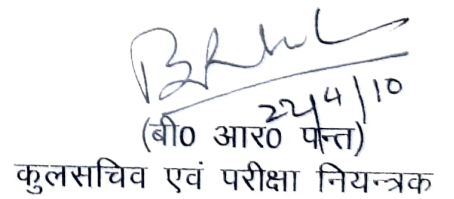 22/4/10
(बी0 आर0 पन्त)
कुलसचिव एवं परीक्षा नियन्त्रक